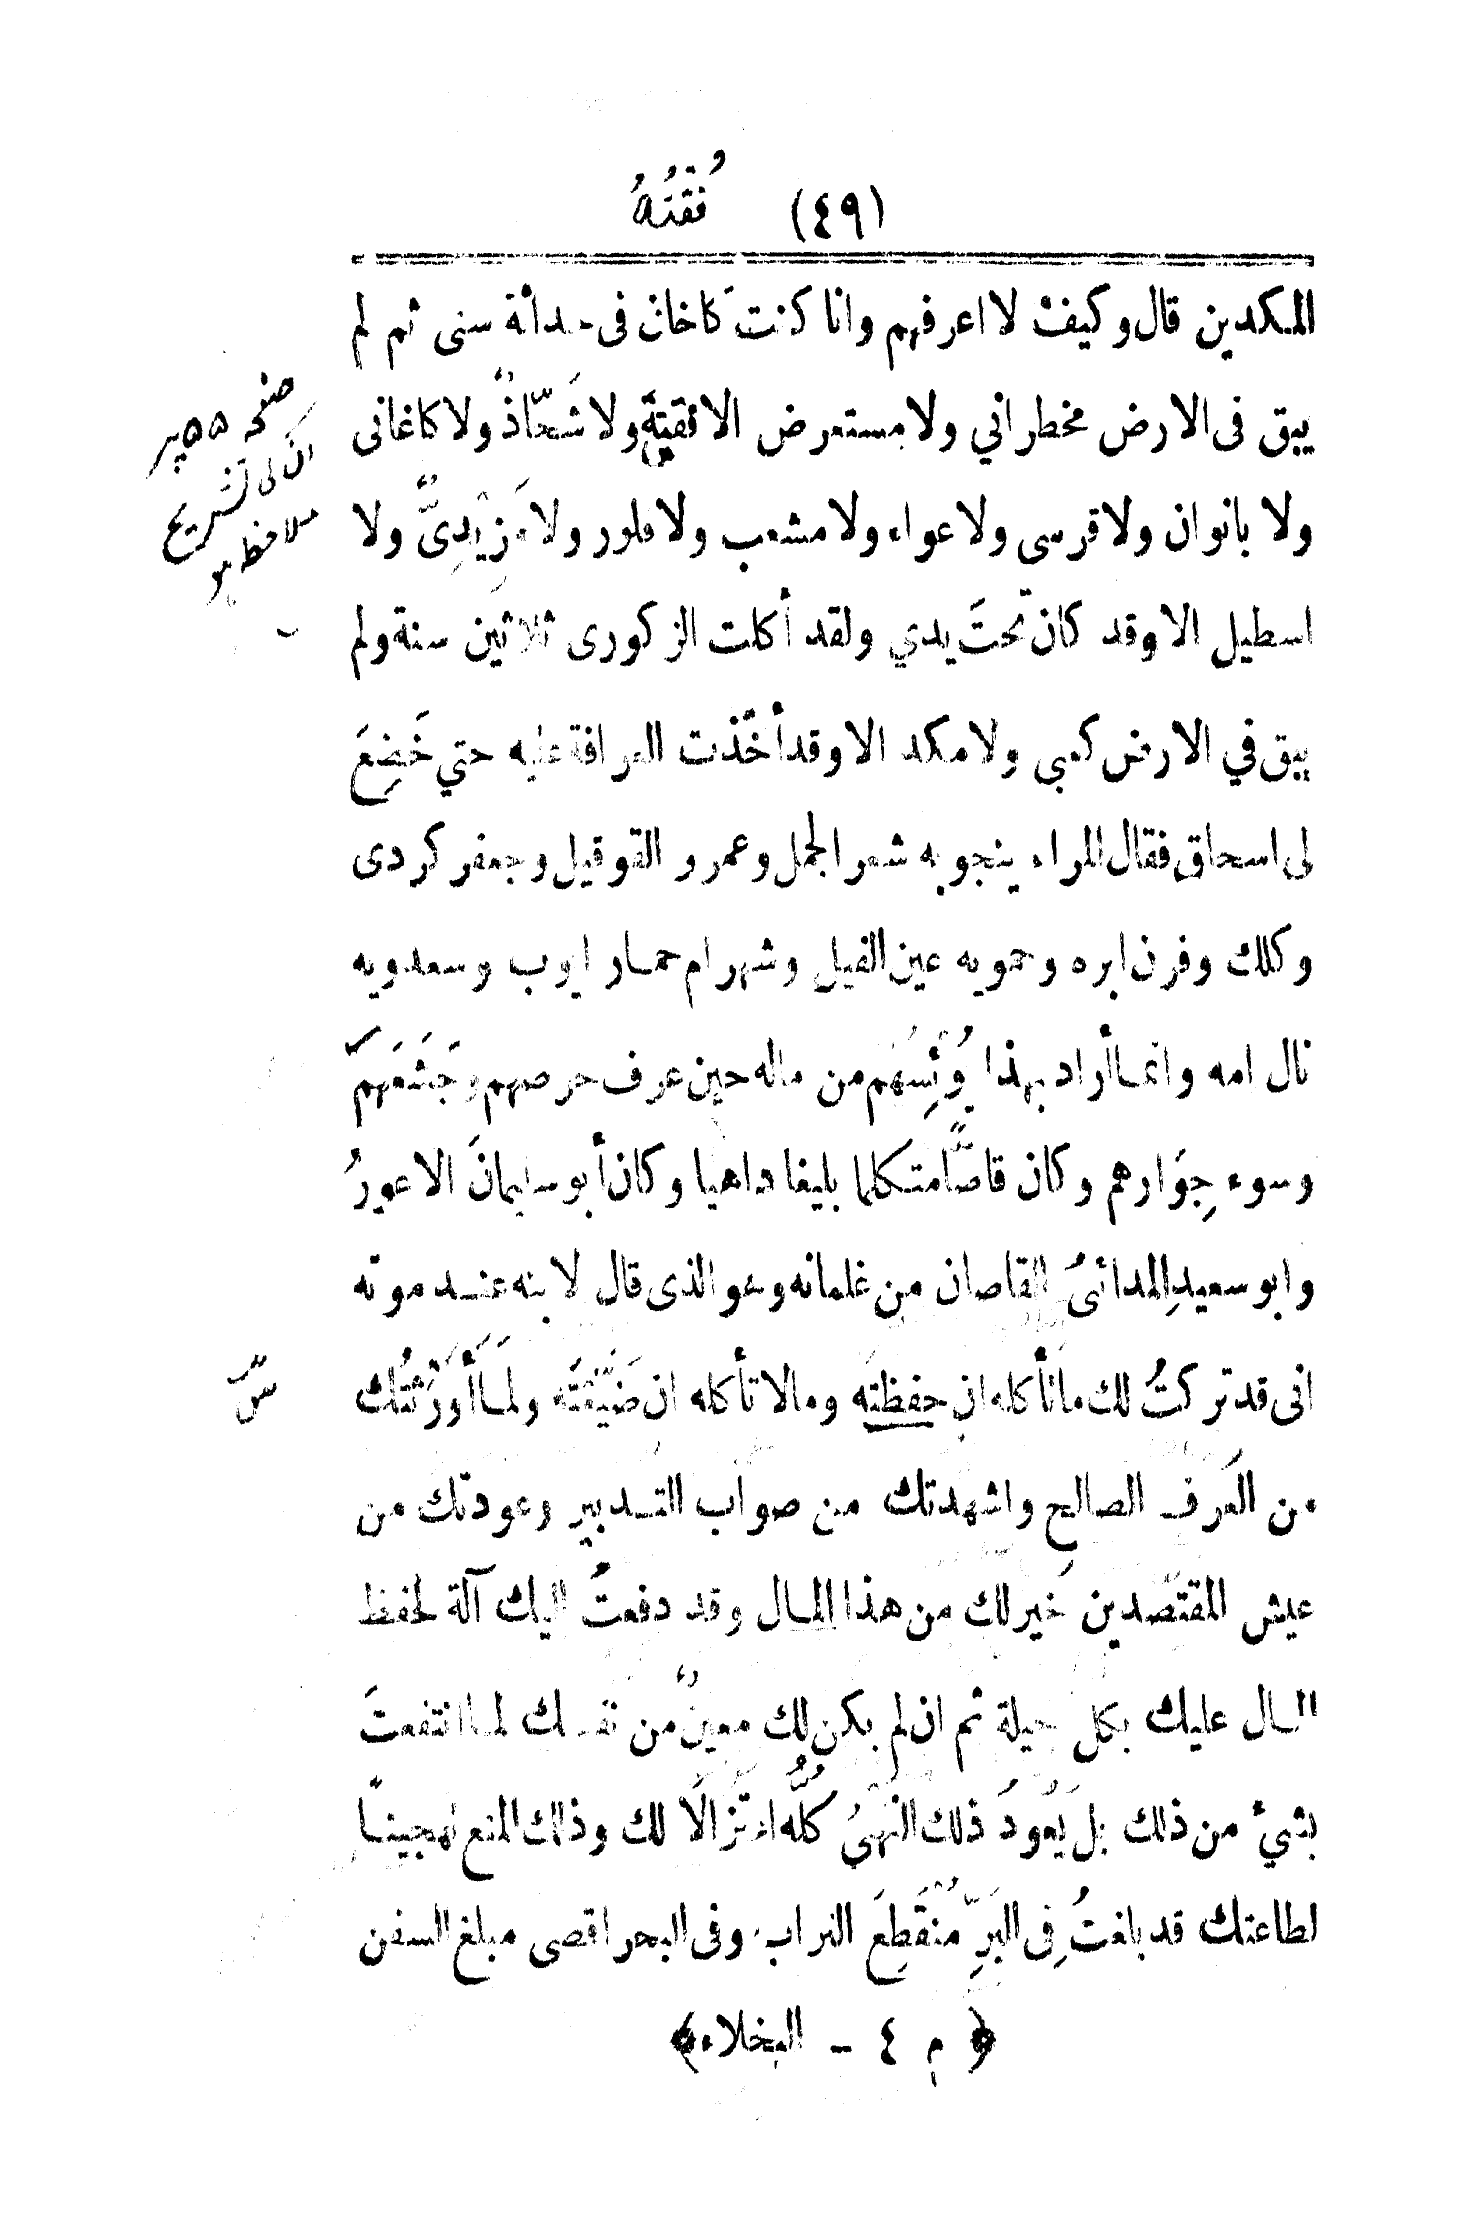 (٤٩) فُقْتُهُ
المكدين قال وكيف لا اعرفهم وانا كنت كاخان فى حداثة سنى ثم لم
يبق فى الارض مخطراني ولا مستعرض الا فقته ولا شَحّاذٌ ولا كاغانى
ولا بانوان ولا قرسى ولا عواء ولا مشعب ولا فلور ولا مَزِيْدِىٌّ ولا
اسطيل الا وقد كان تحتَ يدي ولقد أكلت الزكورى ثلاثين سنة ولم
يبق في الارض كعبى ولا مكد الا وقد أخَذت العرافة عليه حتي خَضِعَ
لى اسحاق فقال المراء ينجويه شعر الجمل وعمرو القوقيل وجعفر كردى
وكلك وقرن ايره وحمويه عين الفيل وشهرام حمار ايوب وسعدويه
نال امه وانما أراد بهذا يُوْئِسَهُم من ماله حين عرف حرصهم وجَشَعَهم
وسوء جِوَارهم وكان قاصًّا متكلما بليغا داهيا وكان أبو سليمانَ الاعورُ
وابو سعيدِ المدائنىُ القاصان من غلمانه وهو الذى قال لابنه عند موته
انى قد تركتُ لك ما تأكله ان حفظتَه وما لا تأكله ان ضَيَّعْتَه ولَمَا أَوْرَثْتُك
صفحه ٥٥ پر
ان کی تشریح
ملاحظہ ہو
من العُرف الصالح واشهدتك من صواب التدبير وعودتك من
عيش المقتصدين خير لك من هذا المال وقد دفعتُ اليك آلة لحفظ
المال عليك بكل حيلة ثم ان لم يكن لك معينٌ من نفسك لما انتفعتَ
بشيءٍ من ذلك بل يَعُودُ ذلك النهىُ كلُّه اغتزالاً لك وذلك المنع تهجينًا
لطاعتك قد بلغتُ فِى البَرِّ مُنْقَطِعَ التراب وفى البحر اقصى مبلغ السفن
﴿ م ٤ – البخلاء ﴾